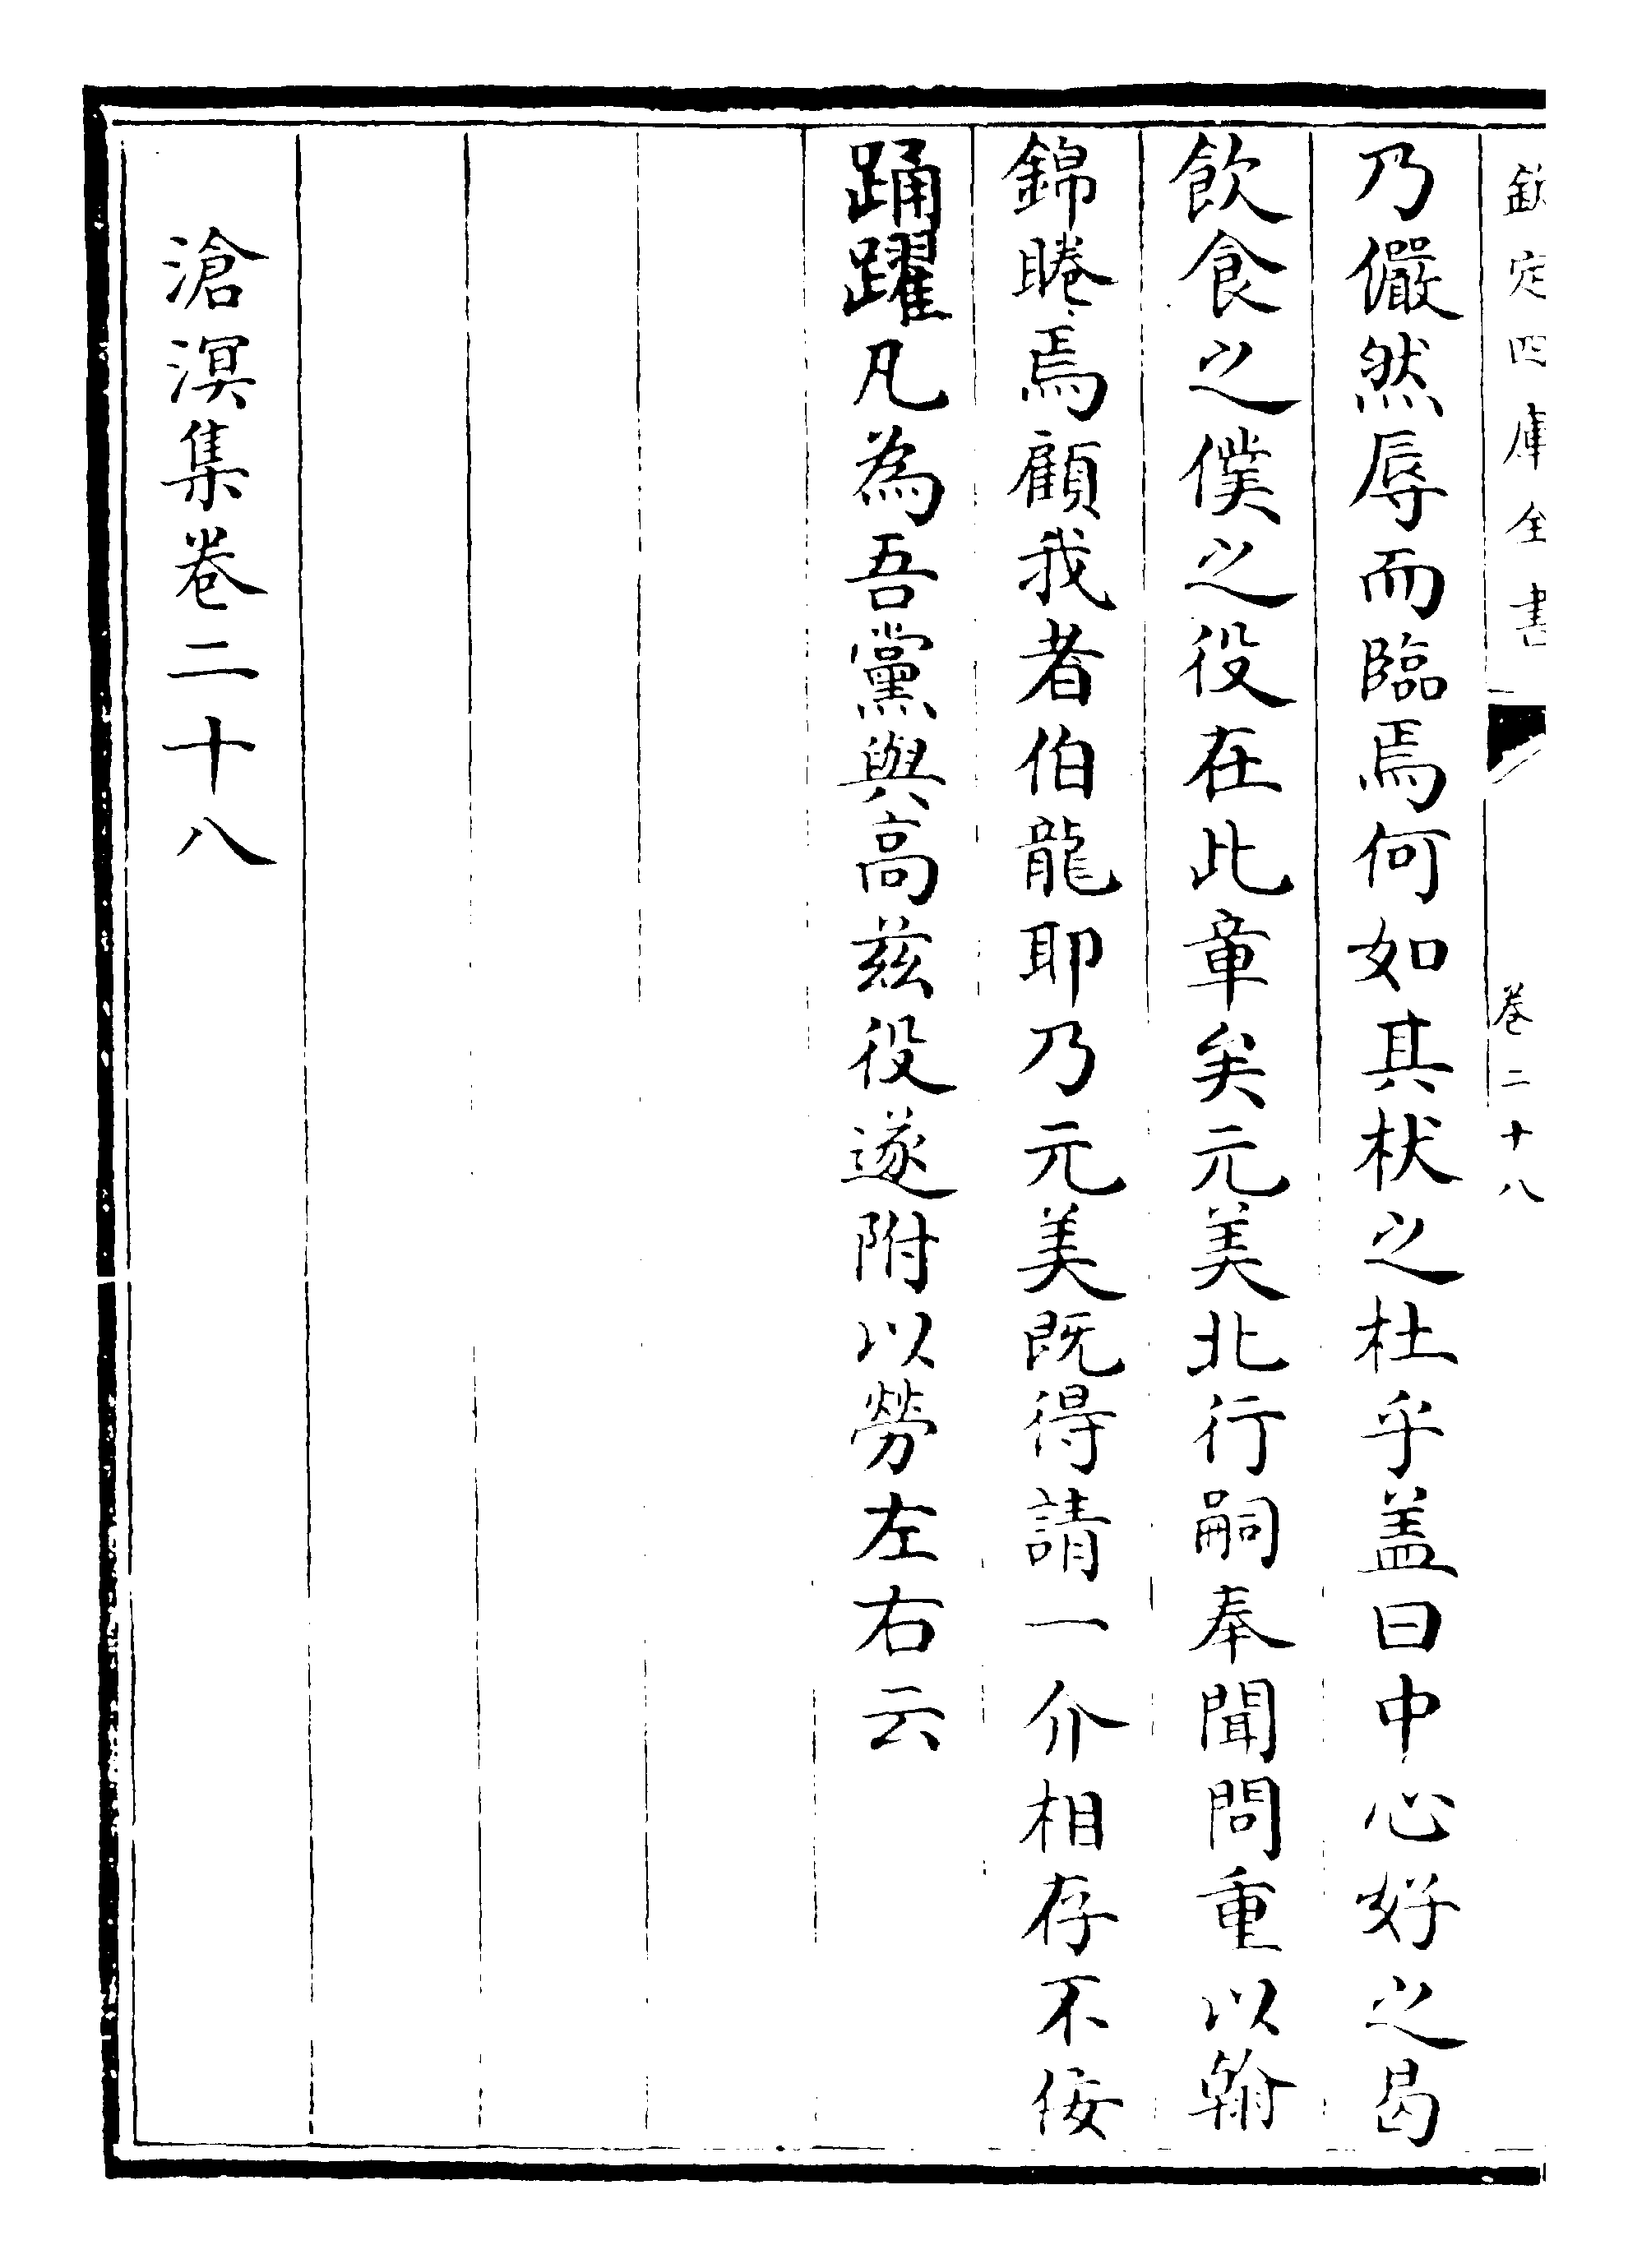 欽定四庫全書 卷二十八
乃儼然辱而臨焉何如其杕之杜乎盖曰中心好之曷
飲食之僕之役在此章矣元美北行嗣奉聞問重以翰
錦睠焉顧我者伯龍耶乃元美既得請一介相存不佞
踊躍凡為吾黨與高兹役遂附以勞左右云
滄溟集卷二十八